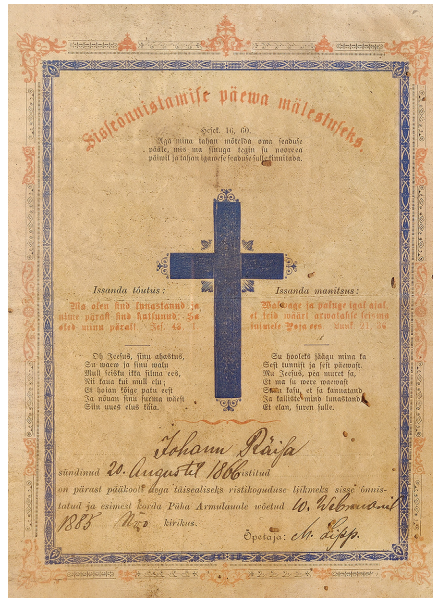 Sisseõnnistamise päewa mälestuseks.
Hesek. 16, 60.
Aga mina tahan mõtelda oma seaduse
pääle, mis ma sinuga tegin su noorea
päiwil ja tahan igawese seaduse sulle kinnitada.
Issanda tõutus:
Ma olen sind lunastanud ja
nime pärast sind kutsunud. Sa
oled minu päralt. Jes. 43, 1.
Issanda manitsus:
Walwage ja paluge igal ajal,
et teid wäärt arwatakse seisma
inimese Poja ees. Luuk. 21, 36.
Oh Jeesus, sinu ahastus,
Su waew ja sinu walu
Mull seisku ikka silma ees,
Nii kaua kui mull elu;
Et hoian kõige patu eest
Ja nõuan sinu surma wäest
Siin uues elus käia.
Su hooleks jäägu mina ka
Sest tunnist ja sest päewast.
Mu Jeesus, pea muret sa,
Et ma su were waewast
Suu kasu, et sa kannatand
Ja kalliste mind lunastand,
Et elan, suren sulle.
Johann Räisa
sündinud 20. Augustil 1866
on pärast pääkooli aega täiealiseks ristikoguduse liikmeks sisse õnnis-
tatud ja esimest korda Püha Armulauale wõetud 10. Webruaril
1885 kirikus.
Õpetaja: M. Lipp.